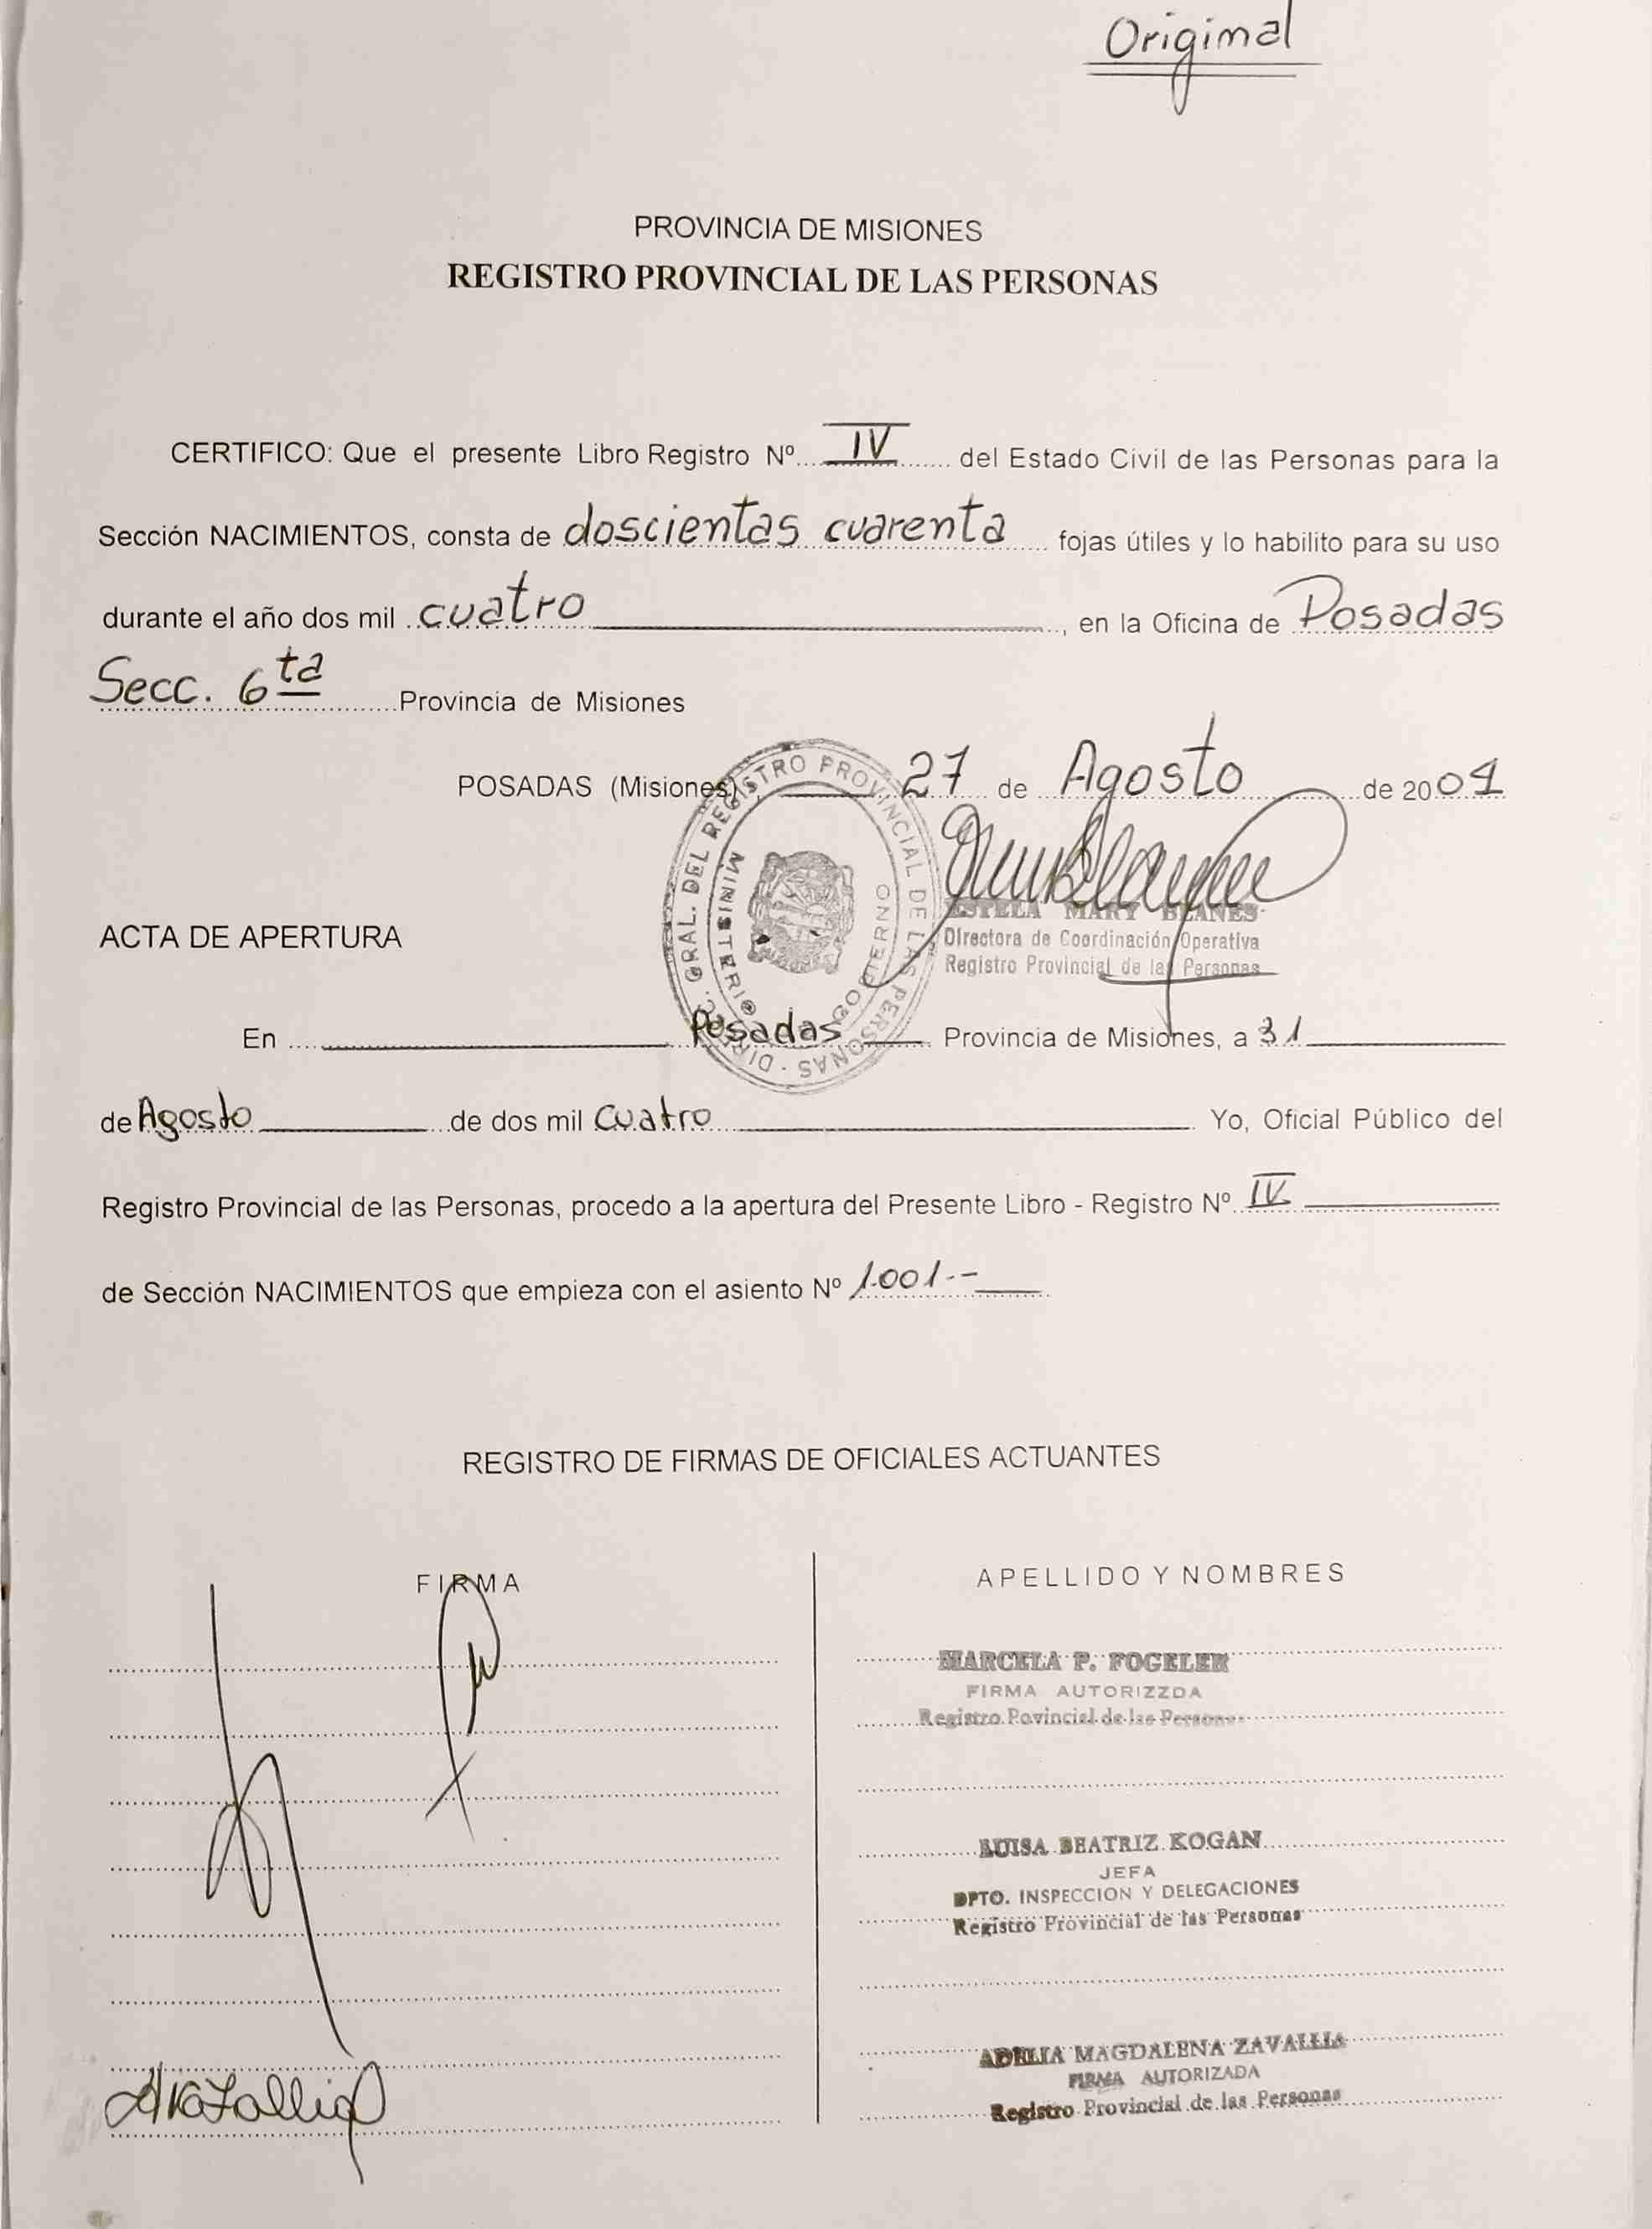 Original
PROVINCIA DE MISIONES
REGISTRO PROVINCIAL DE LAS PERSONAS
CERTIFICO: Que el presente Libro Registro Nº IV del Estado Civil de las Personas para la
Sección NACIMIENTOS, consta de doscientas cuarenta fojas útiles y lo habilito para su uso
durante el año dos mil cuatro, en la Oficina de Posadas
Secc. 6ta Provincia de Misiones
POSADAS (Misiones), 27 de Agosto de 2004
DIRECC. GRAL. DEL REGISTRO PROVINCIAL DE LAS PERSONAS
MINISTERIO GOBIERNO
ESTELA MARY BLANES
Directora de Coordinación Operativa
Registro Provincial de las Personas
ACTA DE APERTURA
En Posadas Provincia de Misiones, a 31
de Agosto de dos mil Cuatro Yo, Oficial Público del
Registro Provincial de las Personas, procedo a la apertura del Presente Libro - Registro Nº IV
de Sección NACIMIENTOS que empieza con el asiento Nº 1.001.-
REGISTRO DE FIRMAS DE OFICIALES ACTUANTES
FIRMA
APELLIDO Y NOMBRES
MARCELA P. FOGELER
FIRMA AUTORIZZDA
Registro Povincial de las Personas
LUISA BEATRIZ KOGAN
JEFA
DPTO. INSPECCION Y DELEGACIONES
Registro Provincial de las Personas
ADELIA MAGDALENA ZAVALLIA
FIRMA AUTORIZADA
Registro Provincial de las Personas